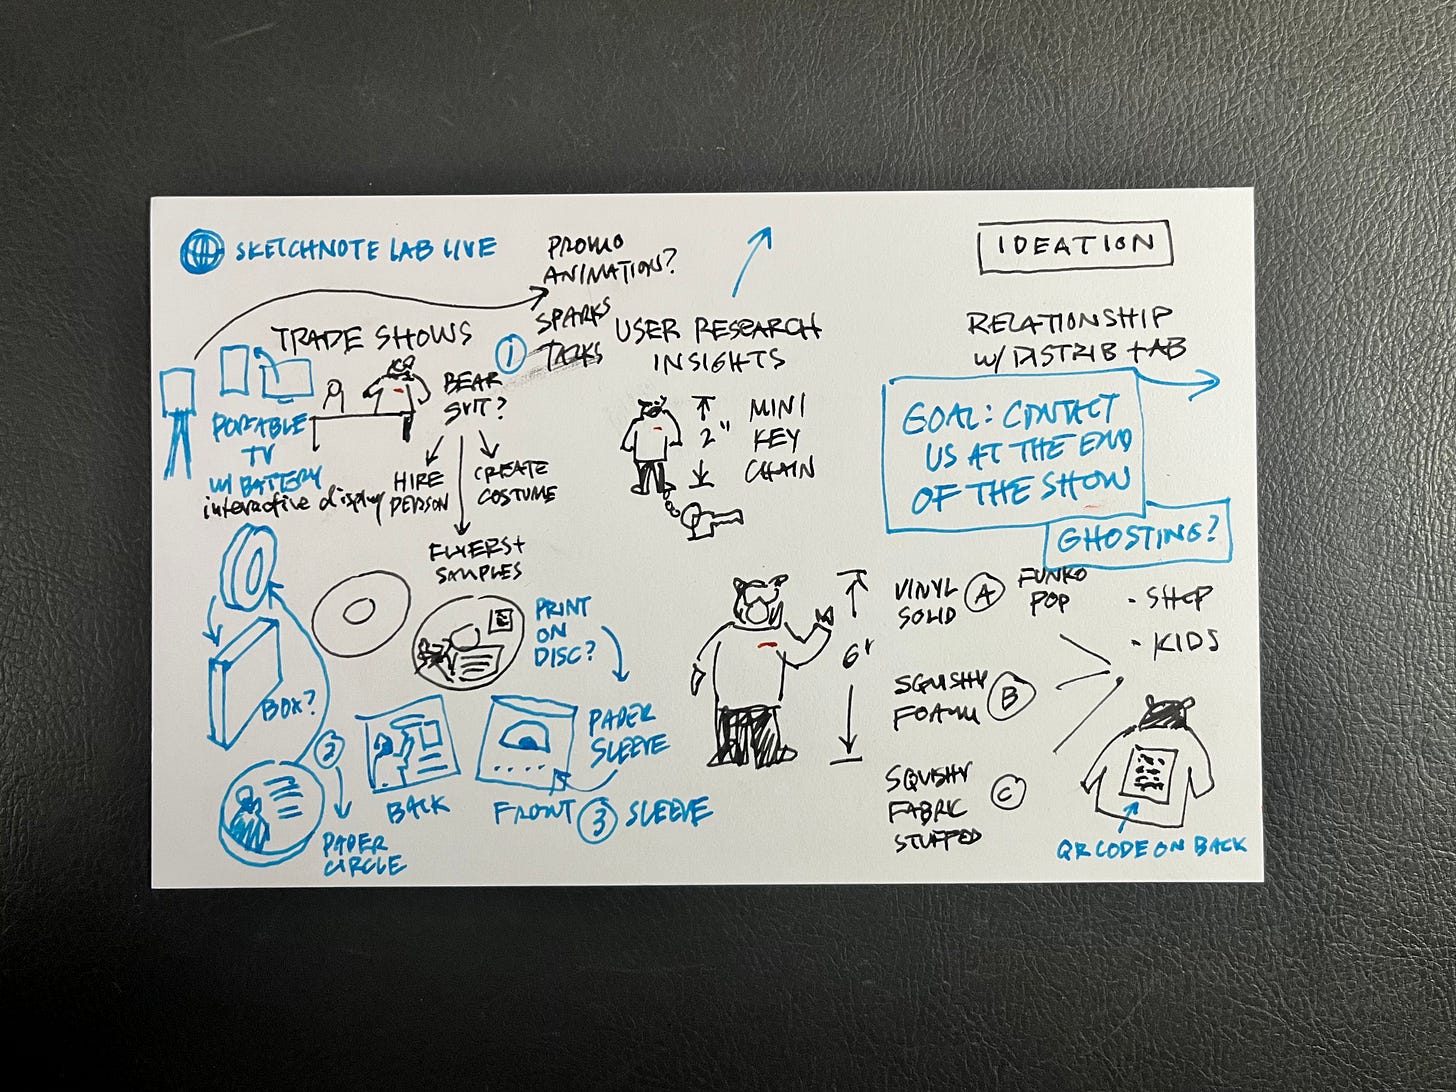 SKETCHNOTE LAB LIVE
PROMO
ANIMATION?
SPARKS
TALKS
TRADE SHOWS
1
BEAR
SUIT?
PORTABLE
TV
W/ BATTERY
interactive display
HIRE
PERSON
CREATE
COSTUME
FLYERS +
SAMPLES
PRINT
ON
DISC?
BOX?
2
PAPER
CIRCLE
BACK
PAPER
SLEEVE
FRONT 3 SLEEVE
USER RESEARCH
INSIGHTS
2"
MINI
KEY
CHAIN
6"
IDEATION
RELATIONSHIP
W/ DISTRIB + AB
GOAL: CONTACT
US AT THE END
OF THE SHOW
GHOSTING?
VINYL
SOLID
A
FUNKO
POP
- SHOP
- KIDS
SQUISHY
FOAM
B
SQUISHY
FABRIC
STUFFED
C
QR CODE ON BACK